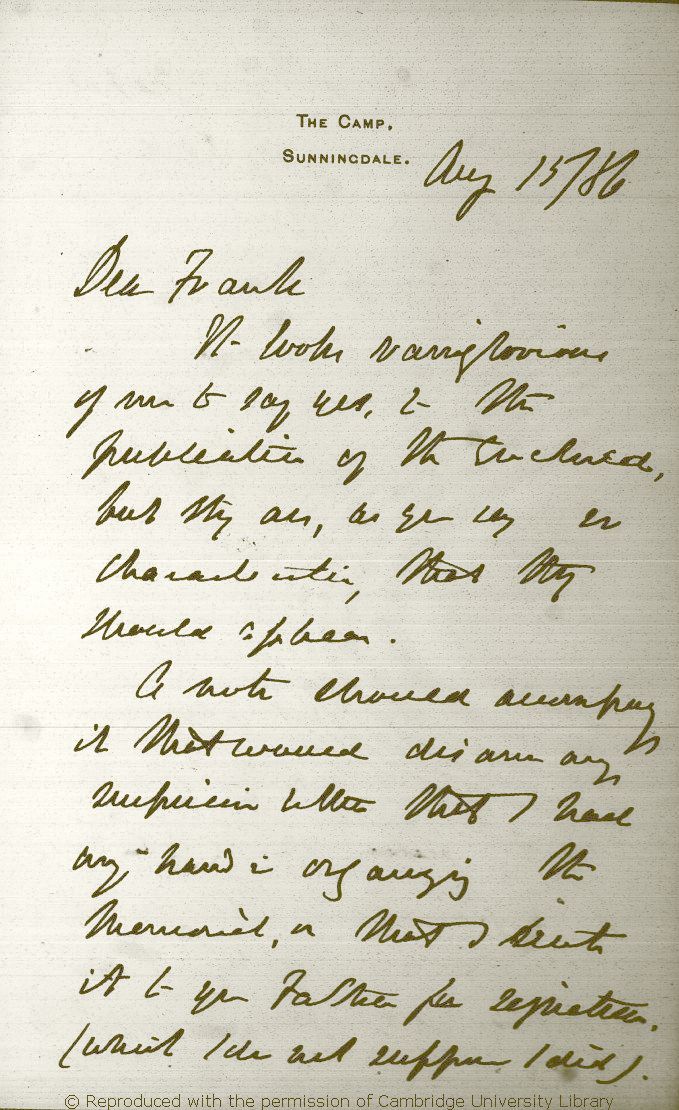 THE CAMP,
SUNNINGDALE.
Aug 15/86
Dear Frank
It looks vainglorious
of me to say yes, to the
publication of the enclosed,
but they are, as you say so
characteristic, that they
should appear.
A note should accompany
it that would disarm any
suspicion either that I had
any hand in organizing the
Memorial, or that I sent
it to your Father for signature.
(which I do not suppose I did).
© Reproduced with the permission of Cambridge University Library